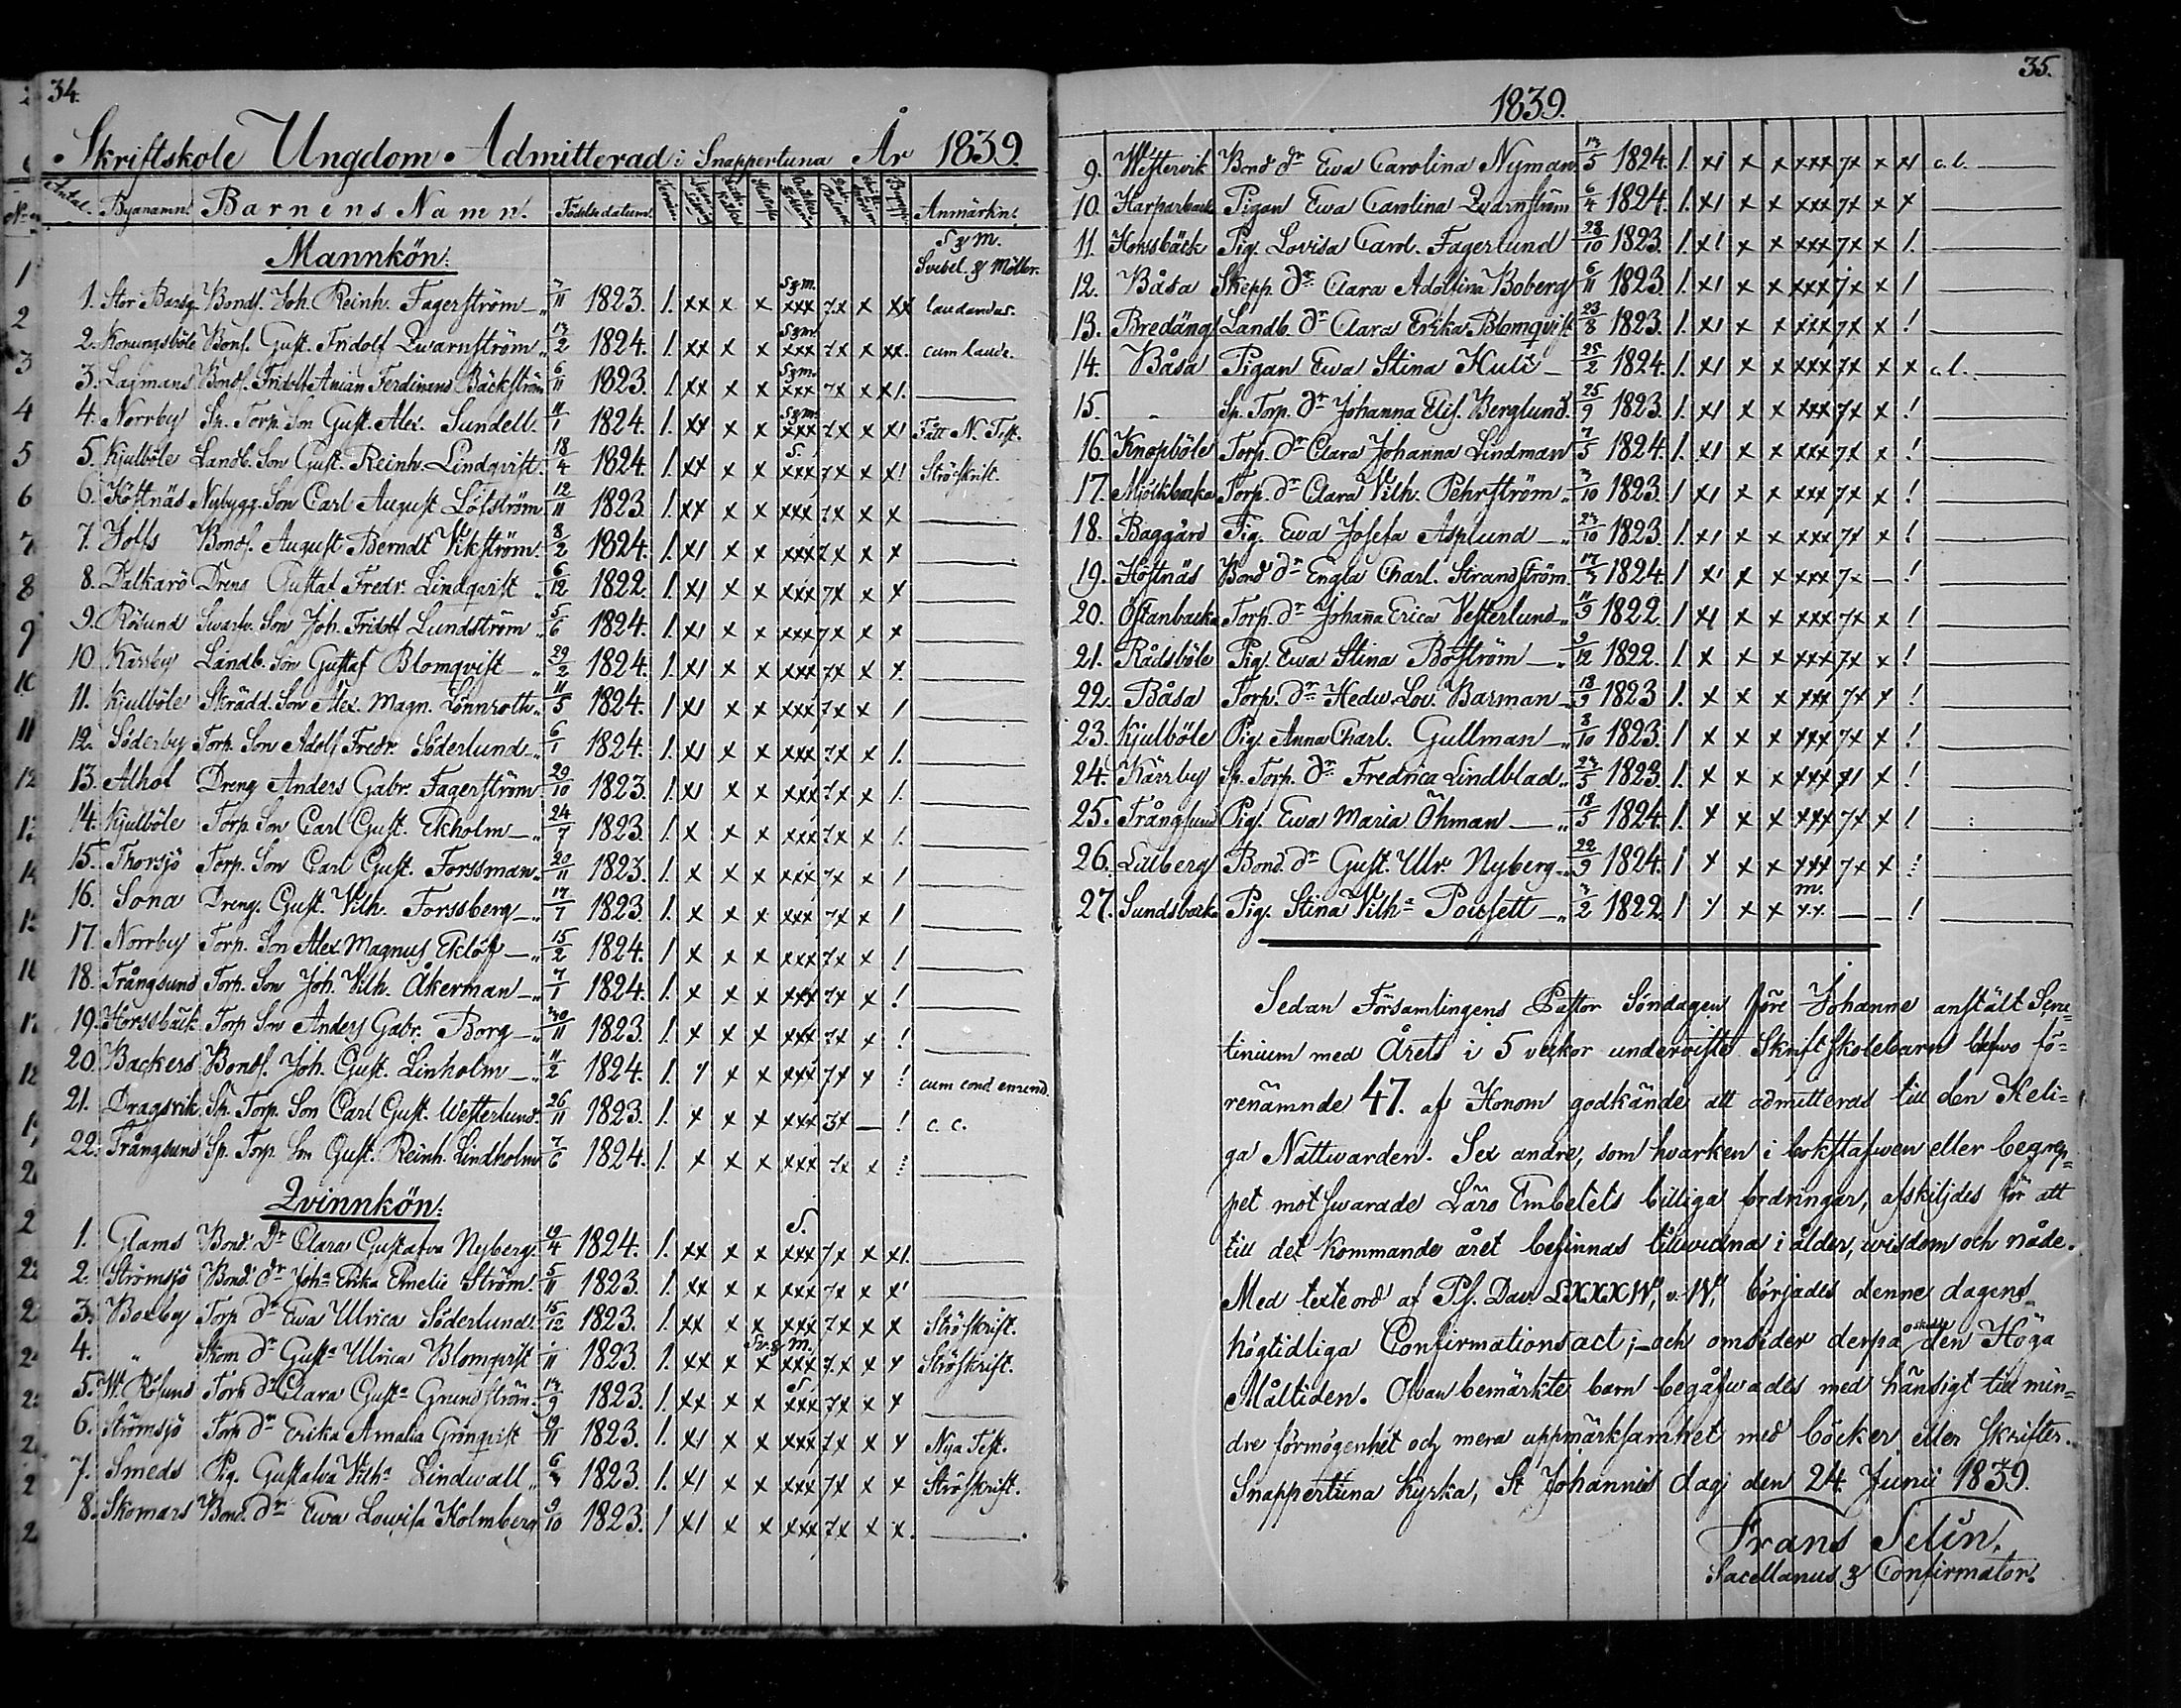 34.
Skriftskole Ungdom Admitterad i Snappertuna År 1839.
Antal. Byanamn. Barnens Namn. Födelsedatum. Anmärkn.
Mannkön: S & M.
Svebel. & Möller.
1. Stor Barsg. Bonds. Joh. Reinh. Fagerström 7/11 1823. 1. xx x x xxx 7x x xx laudandus.
2. Konungsböle Bons. Gust. Fridolf Qvarnström 13/2 1824. 1. xx x x xxx 7x x xx. cum laude.
3. Lagmans Bonds. Fridolf Anian Ferdinand Bäckström 6/11 1823. 1. xx x x xxx 7x x x1.
4. Norrby Sp. Torp. Son Gust. Alex. Sundell. 11/1 1824. 1. xx x x xxx 7x x x! Fått N. Test.
5. Kjulböle Landb. Son Gust. Reinh. Lindqvist. 18/4 1824. 1. xx x x xxx 7x x x! Ströskrift.
6. Höstnäs Nybygg. Son Carl August Löfström 12/11 1823. 1. xx x x xxx 7x x x
7. Joffs Bonds. August Berndt Vikström. 8/2 1824. 1. x1 x x xxx 7x x x
8. Dalkarö Dreng Gustaf Fredr. Lindqvist 6/12 1822. 1. x1 x x xxx 7x x x
9. Rösund Swarfv. Son Joh. Fridolf Lundström 5/6 1824. 1. x1 x x xxx 7x x x
10. Kärrby Landb. Son Gustaf Blomqvist 29/2 1824. 1. x1 x x xxx 7x x x
11. Kjulböle Skrädd. Son Alex. Magn. Lönnroth 11/5 1824. 1. x1 x x xxx 7x x !
12. Söderby Torp. Son Adolf Fredr. Söderlund 6/1 1824. 1. x1 x x xxx 7x x 1.
13. Alhol Dreng Anders Gabr. Fagerström 29/10 1823. 1. x1 x x xxx 7x x 1.
14. Kjulböle Torp. Son Carl Gust. Ekholm 24/7 1823. 1. x x x xxx 7x x 1.
15. Thorsjö Torp. Son Carl Gust. Forssman 20/11 1823. 1. x x x xxx 7x x !
16. Sona Dreng. Gust. Vilh. Forssberg 17/7 1823. 1. x x x xxx 7x x !
17. Norrby Torp. Son Alex Magnus Eklöf 15/2 1824. 1. x x x xxx 7x x !
18. Trångsund Torp. Son Joh. Vilh. Åkerman 7/1 1824. 1. x x x xxx 7x x !
19. Horssbäck Torp Son Anders Gabr. Borg 30/11 1823. 1. x x x xxx 7x x !
20. Backers Bonds. Joh. Gust. Linholm 11/2 1824. 1. x x x xxx 7x x ! cum cond. emend.
21. Dragsvik Sp. Torp. Son Carl Gust. Westerlund. 26/11 1823. 1. x x x xxx 3x — ! c. c.
22. Trångsund Sp. Torp. Son Gust. Reinh. Lindholm 7/6 1824. 1. x x x xxx 7x x !
Qvinnkön:
1. Glams Bond. Dr Clara Gustafva Nyberg. 1824. 1. xx x x xxx 7x x x1.
2. Strömsjö Bond. dr Joha Erika Emelie Ström. 5/11 1823. 1. xx x x xxx 7x x x!
3. Boxby Torp dr Ewa Ulrica Söderlund. 15/12 1823. 1. xx x x xxx 7x x x Ströskrift.
4. " Skom dr Gusta Ulrica Blomqvist 1823. 1. xx x x xxx 7x x x Ströskrift.
5. W. Rösund Torp dr Clara Gusta Grundström. 13/9 1823. 1. xx x x xxx 7x x x
6. Strömsjö Torp dr Erika Amalia Grönqvist 1823. 1. x1 x x xxx 7x x x Nya Test.
7. Smeds Pig. Gustafva Vilha Lindwall 1823. 1. x1 x x xxx 7x x x Ströskrift.
8. Skomars Bond. dr Ewa Lovisa Holmberg 9/10 1823. 1 x1 x x xxx 7x x x.
35.
1839.
9. Westervik Bond dr Ewa Carolina Nyman 13/5 1824. 1. x1 x x xxx 7x x x1 c.l.
10. Harparback Pigan Ewa Carolina Qvarnström 6/4 1824. 1. x1 x x xxx 7x x x
11. Horssbäck Pig. Lovisa Carol. Fagerlund 28/10 1823. 1. x! x x xxx 7x x !
12. Båsa Skepp. dr Clara Adolfina Boberg 6/11 1823. 1. x1 x x xxx 7x x !
13. Bredäng Landb. dr Clara Erika Blomqvist 23/8 1823. 1. x1 x x xxx 7x x !
14. Båsa Pigan Ewa Stina Huli 25/2 1824. 1. x1 x x xxx 7x x x c.l.
15. " Sp. Torp. dr Johanna Elis. Berglund. 25/9 1823. 1. x1 x x xxx 7x x !
16. Knopböle Torp. dr Clara Johanna Lindman 7/5 1824. 1. x1 x x xxx 7x x !
17. Mjölkbacka Torp. dr Clara Vilh. Pehrström 3/10 1823. 1 x1 x x xxx 7x x !
18. Baggård Pig. Ewa Josefa Asplund 23/10 1823. 1. x1 x x xxx 7x x !
19. Höstnäs Bond dr Engla Charl. Strandström. 17/3 1824. 1 x1 x x xxx 7x — !
20. Östanbacka Torp. dr Johana Erica Vesterlund 11/9 1822. 1 x1 x x xxx 7x x !
21. Rådsböle Pig. Ewa Stina Boström 9/12 1822. 1. x x x xxx 7x x !
22. Båsa Torp. dr Hedw. Lov. Barman 13/9 1823 1. x x x xxx 7x x !
23. Kjulböle Pig. Anna Charl. Gullman 8/10 1823. 1 x x x xxx 7x x !
24. Kärrby Sp. Torp. dr Fredrica Lindblad 23/5 1823. 1. x x x xxx x1 x !
25. Trångsund Pig. Ewa Maria Öhman 18/5 1824. 1. x x x xxx 7x x !
26. Lillberg Bond. dr Gust. Ulr. Nyberg 22/9 1824. 1 x x x xxx 7x x !
27. Sundsbacka Pig. Stina Vilha Poussett 3/2 1822. 1 x x x xx — — !
Sedan Församlingens Pastor Söndagen före Johanne anstält Scru=
tinium med Årets i 5 veckor underviste Skriftskolebarn blefwo fö=
renämnde 47. af Honom godkände att admitteras till den Heli=
ga Nattwarden. Sex andre, som hvarken i bokstafwen eller begrep=
pet motswarade Läro Embetets billiga fordringar, afskiljdes för att
till det kommande året befinnas tillwuxna i ålder, wisdom och nåde.
Med texte ord af Ps. Dav. LXXXIV, v. IV, börjades denne dagens
högtidliga Confirmationsact; och omsider derpå den Höga
Måltiden. Ofvan bemärkte barn begåfwades med hänsigt till min=
dre förmögenhet och mera uppmärksamhet med böcker eller skrifter.
Snappertuna Kyrka, St Johannis dag den 24 Junii 1839.
Frans Selin.
Sacellanus & Confirmator.